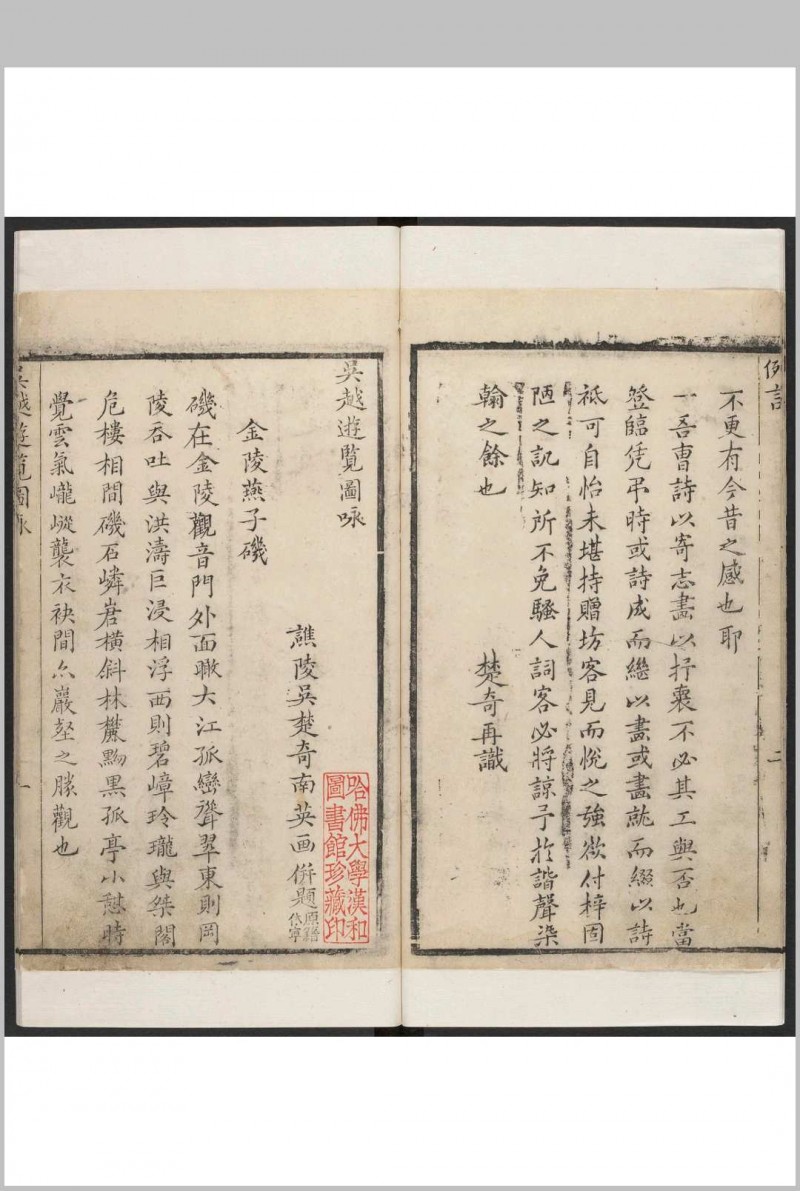 例言
不更有今昔之感也耶
一吾曹詩以寄志畫以抒衷不必其工與否也當
登臨凭弔時或詩成而繼以畫或畫就而綴以詩
祇可自怡未堪持贈坊客見而悅之強欲付梓固
陋之訊知所不免騷人詞客必將諒予扵諧聲染
翰之餘也
楚奇再識
二
吳越遊覽圖咏
譙陵吳楚奇南英画併題
哈佛大學漢和
圖書館珍藏印
金陵燕子磯
磯在金陵觀音門外面瞰大江孤巒聳翠東則岡
陵吞吐與洪濤巨浸相浮西則碧嶂玲瓏與桀閣
危樓相間磯石嶙峋橫斜林麓黝黑孤亭小憩時
覺雲氣巃嵷襲衣袂間亦巖壑之勝觀也
吳越遊覽圖咏
一